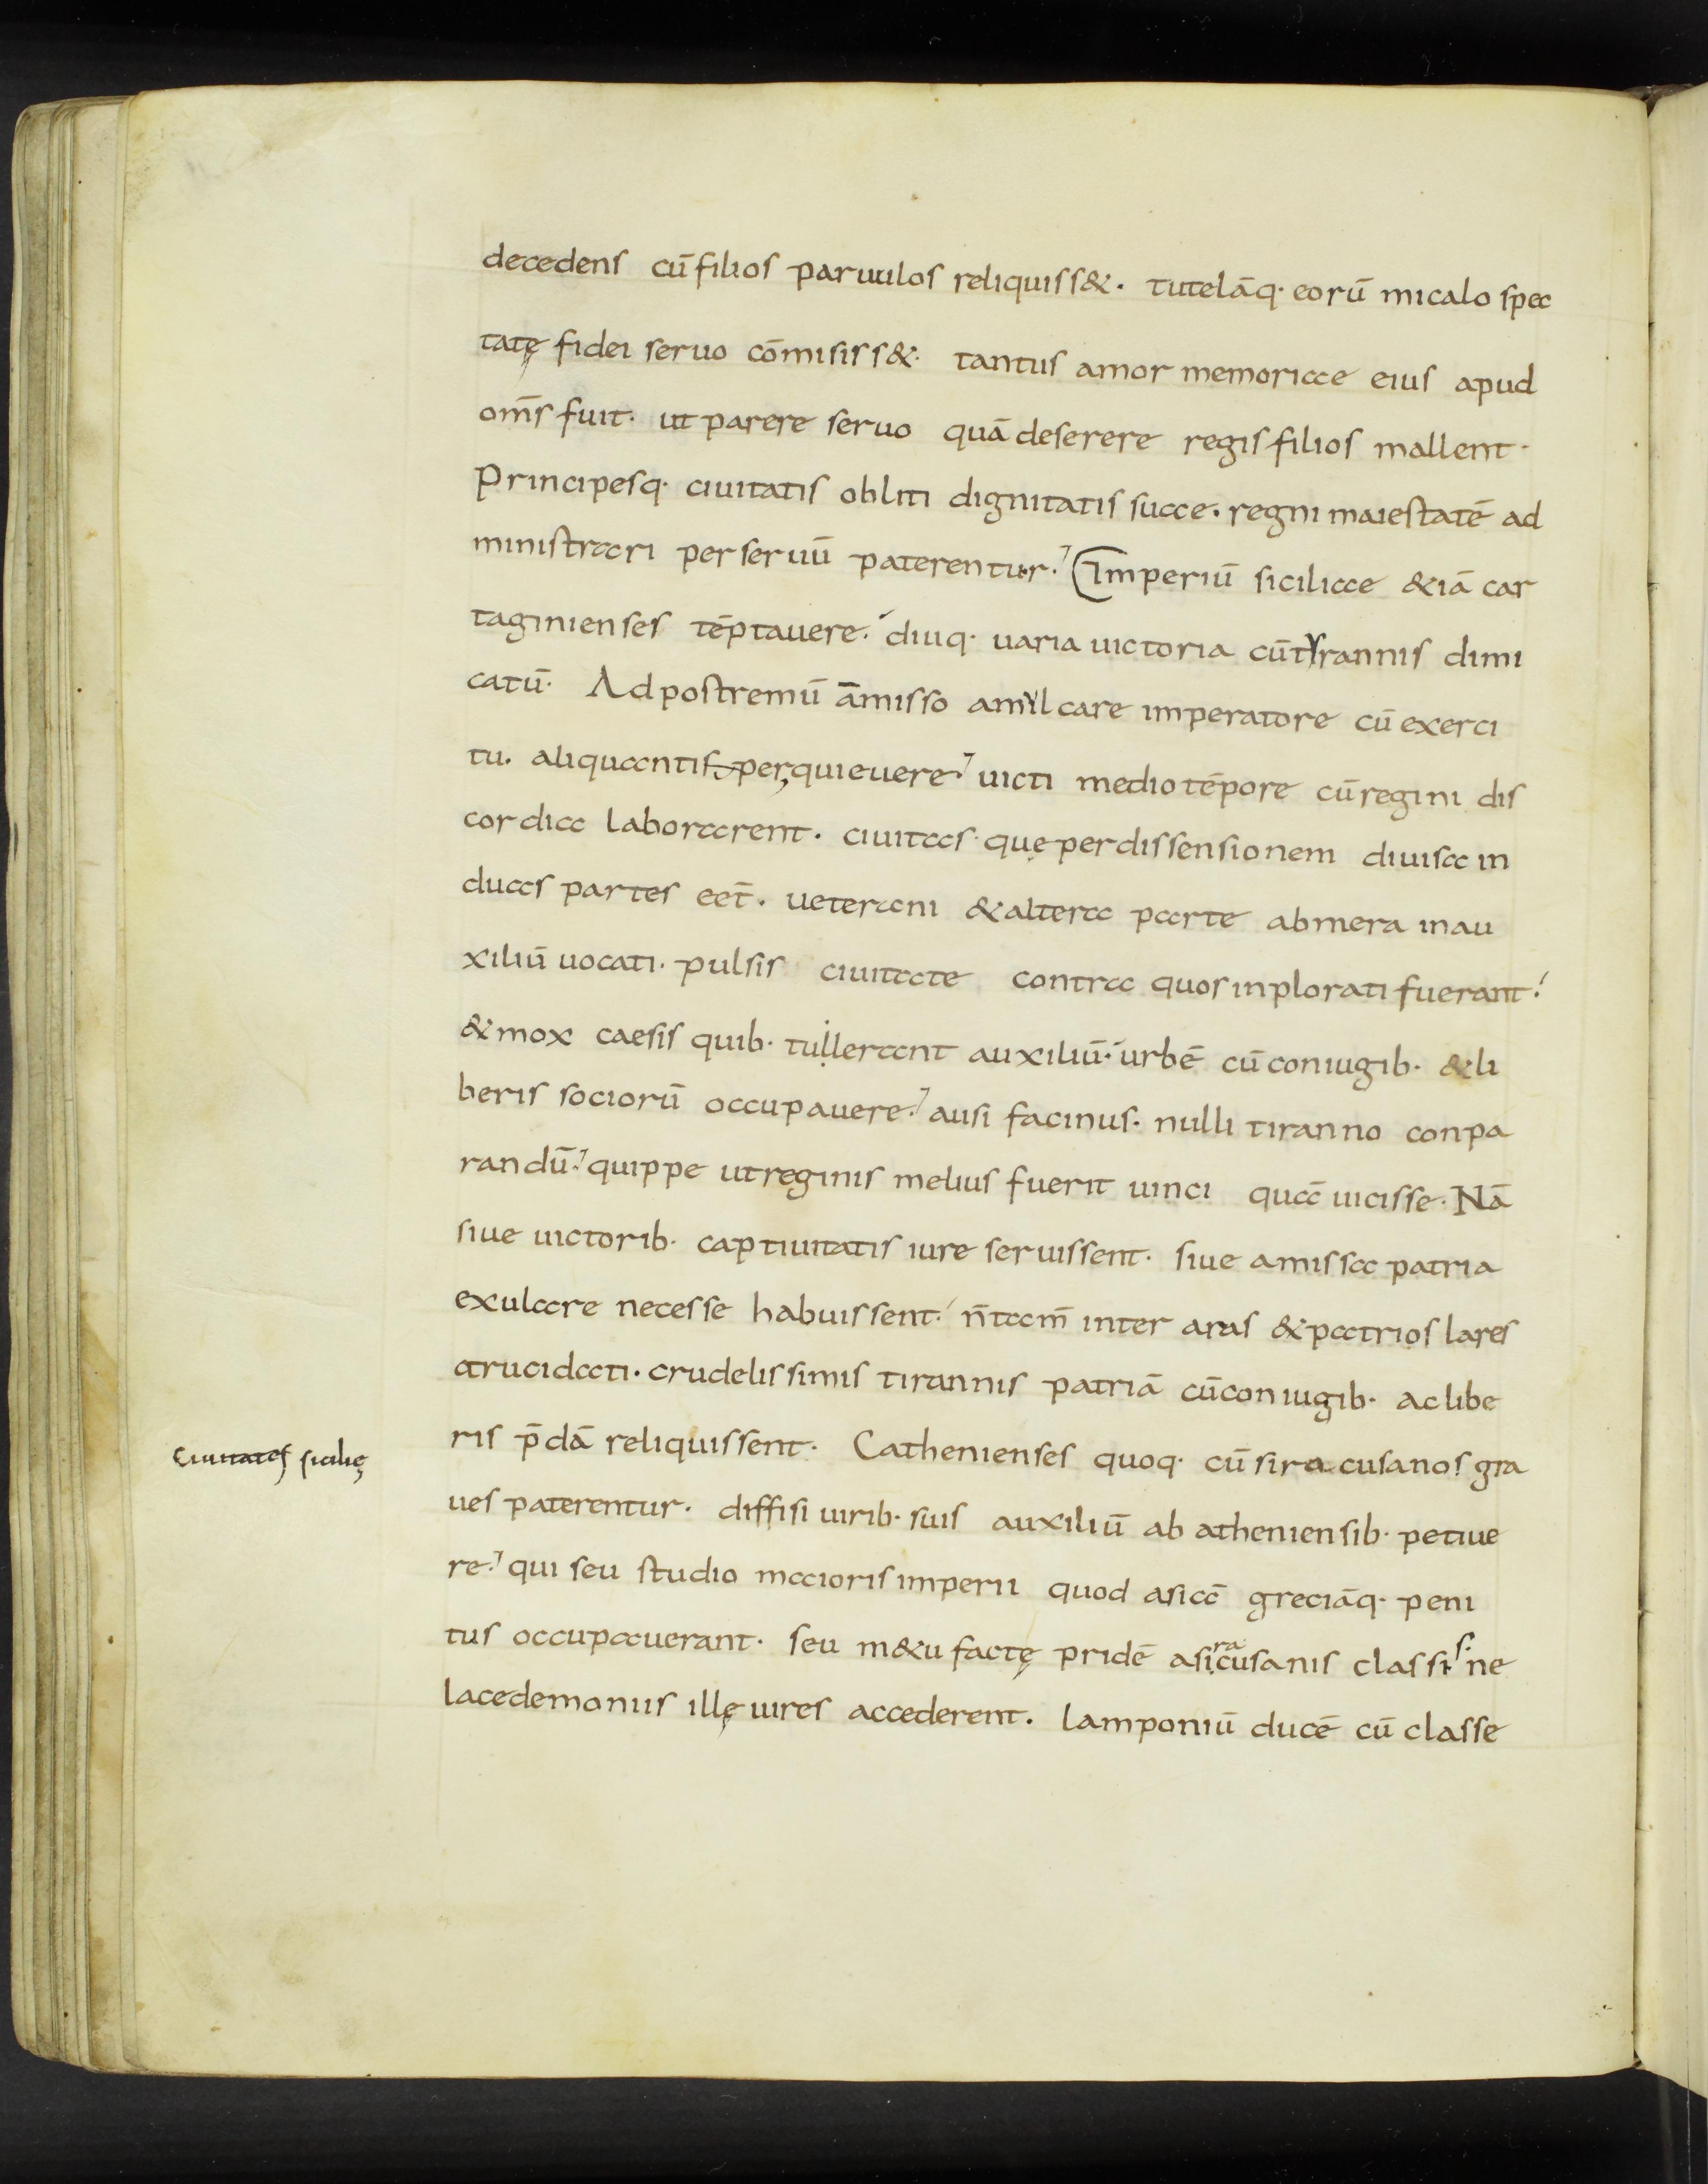 decedens cū filios paruulos reliquiss&. tutelāq· eorū micalo spec
tatę fidei seruo cōmisiss&· tantus amor memoriae eius apud
om̄s fuit· ut parere seruo quā deserere regis filios mallent·
Principesq· ciuitatis obliti dignitatis suae. regni maiestatē ad
ministrari per seruū paterentur. Imperiū siciliae &iā car
taginienses tēptauere. diuq· uaria uictoria cū tyrannis dimi
catū· Ad postremū amisso amilcare imperatore cū exerci
tu. aliquantisper quieuere. uicti medio tēpore cū regini dis
cordia laborarent. ciuitas· quę per dissensionem diuisa in
duas partes eēt. ueterani & altera parte ab mera in au
xiliū uocati. pulsis ciuitate contra quos inplorati fuerant.
& mox caesis quib· tullerant auxiliū· urbē cū coniugib· & li
beris sociorū occupauere. ausi facinus· nulli tiranno conpa
randū. quippe ut reginis melius fuerit uinci quā uicisse. Nā
siue uictorib· captiuitatis iure seruissent· siue amissa patria
exulare necesse habuissent· n̄ tam̄ inter aras & patrios lares
trucidati. crudelissimis tirannis patriā cū coniugib· ac libe
ris p̄dā reliquissent· Cathenienses quoq· cū siracusanos gra
Ciuitates sicilię
ues paterentur. diffisi uirib· suis auxiliū ab atheniensib· petiue
re. qui seu studio maioris imperii quod asiā greciāq· peni
tus occupauerant· seu m&u factę pridē a siracusanis classis ne
lacedemoniis illę uires accederent. lamponiū ducē cū classe